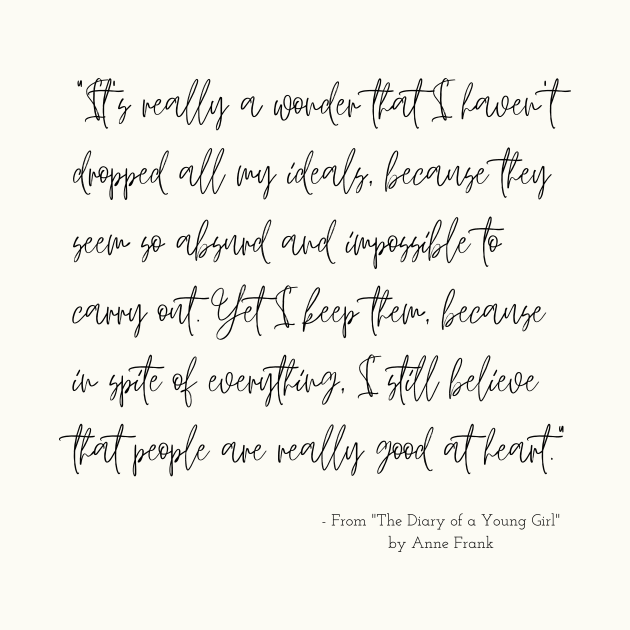 "It's really a wonder that I haven't
dropped all my ideals, because they
seem so absurd and impossible to
carry out. Yet I keep them, because
in spite of everything, I still believe
that people are really good at heart."
- From "The Diary of a Young Girl"
by Anne Frank